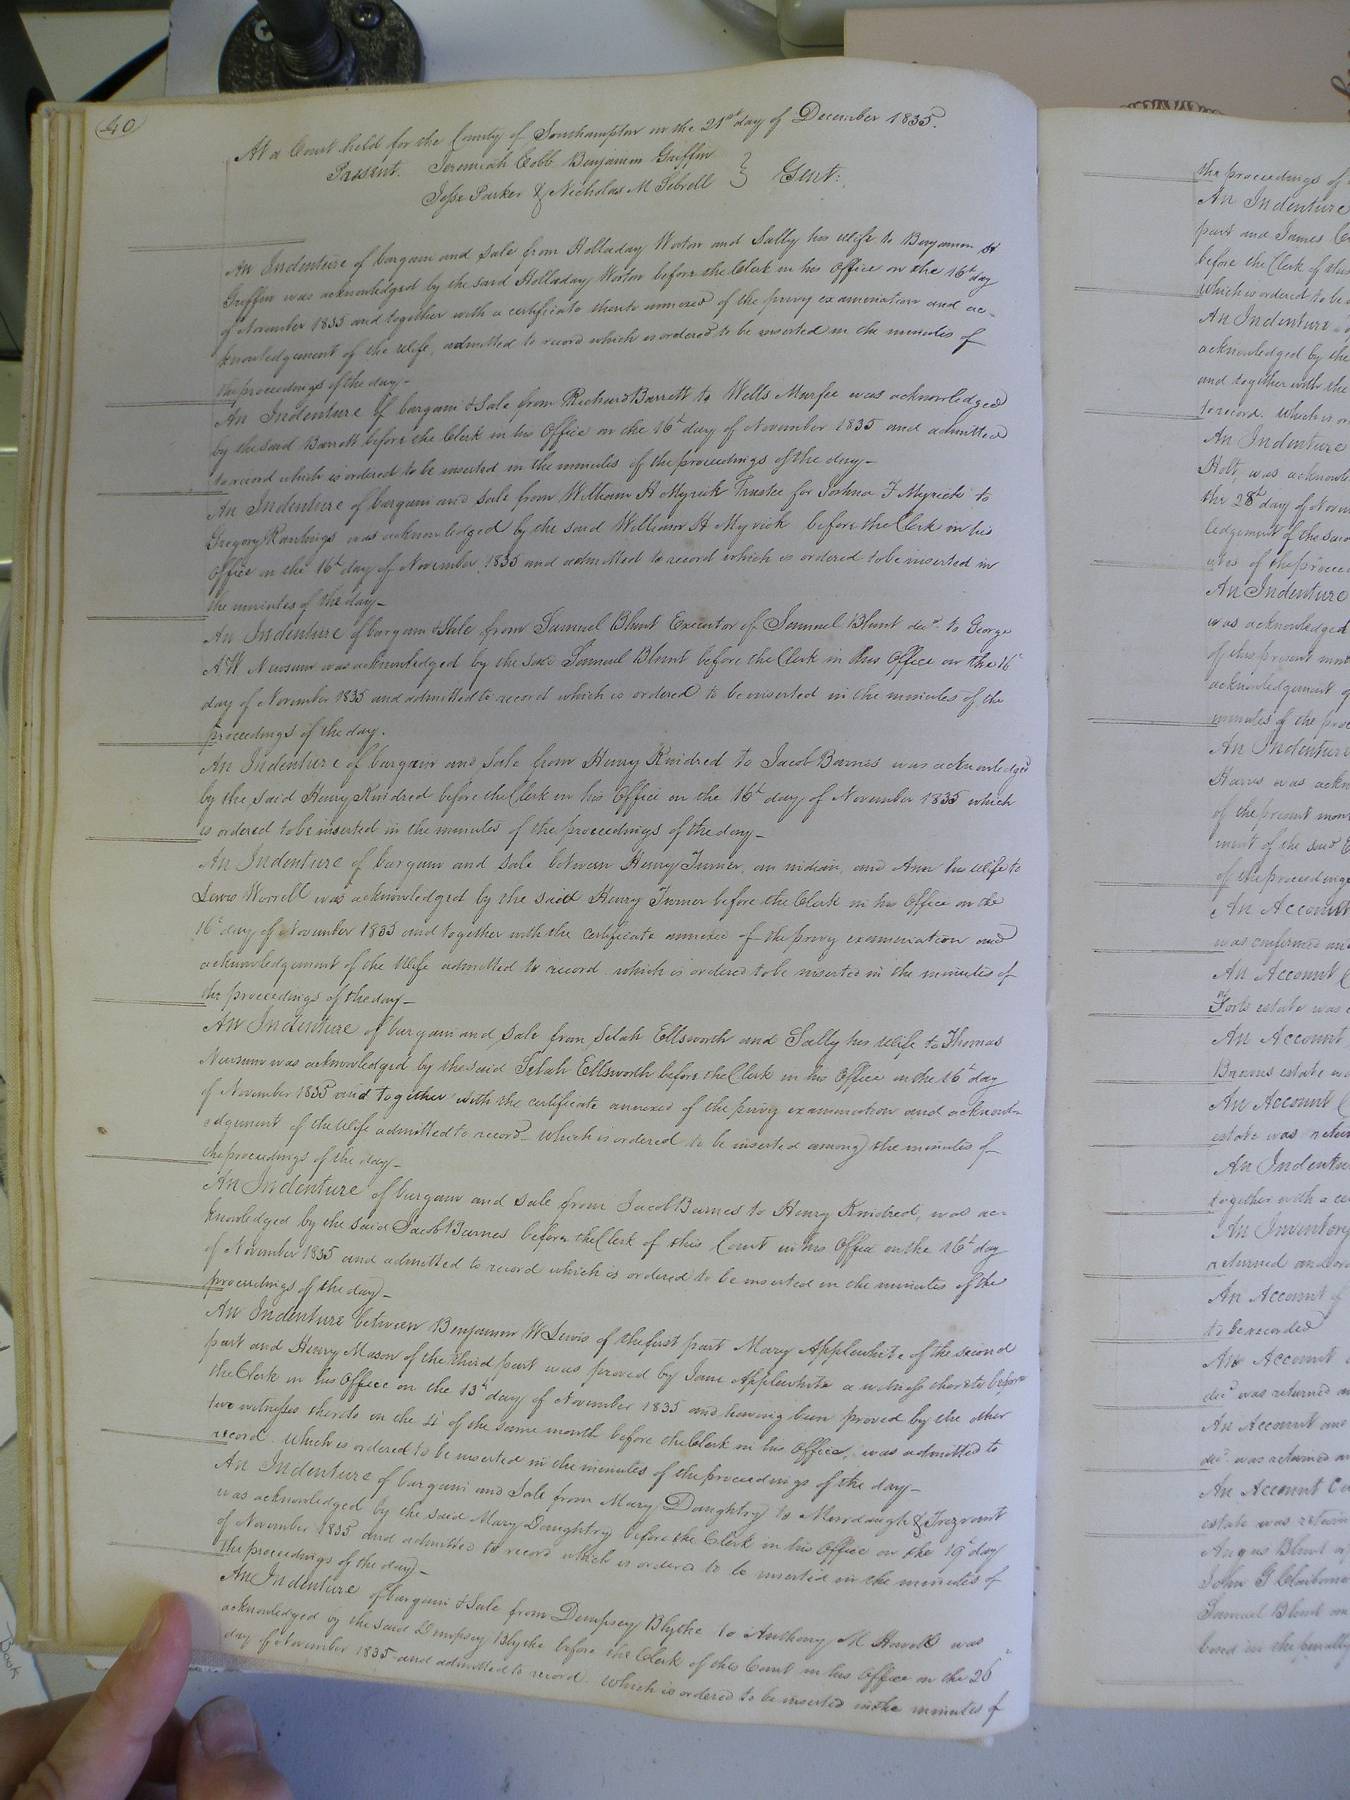 40
At a Court held for the County of Southampton on the 21st day of December 1835.
Present. Jeremiah Cobb Benjamin Griffin
Jesse Parker & Nicholas M Sebrell } Gent:
An Indenture of bargain and sale from Holladay Worton and Sally his Wife to Benjamin
Griffin was acknowledged by the said Holladay Worton before the Clerk in his Office on the 16th day
of November 1835 and together with a certificate thereto annexed of the privy examination and ac-
knowledgement of the Wife, admitted to record which is ordered to be inserted in the minutes of
the proceedings of the day-
An Indenture of bargain & Sale from Richard Barrett to Wells Murfee was acknowledged
by the said Barrett before the Clerk in his Office on the 16th day of November 1835 and admitted
to record which is ordered to be inserted in the minutes of the proceedings of the day-
An Indenture of bargain and sale from William H Myrick Trustee for Joshua F Myrick to
Gregory Rawlings was acknowledged by the said William H Myrick before the Clerk in his
Office on the 16th day of November 1835 and admitted to record which is ordered to be inserted in
the minutes of the day-
An Indenture of bargain & Sale from Samuel Blunt Executor of Samuel Blunt decd. to George
A W Newsum was acknowledged by the said Samuel Blunt before the Clerk in his Office on the 16th
day of November 1835 and admitted to record which is ordered to be inserted in the minutes of the
proceedings of the day.
An Indenture of bargain and sale from Henry Kindred to Jacob Barnes was acknowledged
by the said Henry Kindred before the Clerk in his Office on the 16th day of November 1835 which
is ordered to be inserted in the minutes of the proceedings of the day-
An Indenture of bargain and sale between Henry Turner, an indian, and Ann his Wife to
Lewis Worrell was acknowledged by the said Henry Turner before the Clerk in his Office on the
16th day of November 1835 and together with the certificate annexed of the privy examination and
acknowledgement of the Wife admitted to record which is ordered to be inserted in the minutes of
the proceedings of the day-
An Indenture of bargain and sale from Selah Ellsworth and Sally his Wife to Thomas
Newsum was acknowledged by the said Selah Ellsworth before the Clerk in his Office on the 16th day
of November 1835 and together with the certificate annexed of the privy examination and acknowl-
edgement of the Wife admitted to record- which is ordered to be inserted among the minutes of
the proceedings of the day-
An Indenture of bargain and sale from Jacob Barnes to Henry Kindred, was ac-
knowledged by the said Jacob Barnes before the Clerk of this Court in his Office on the 16th day
of November 1835 and admitted to record which is ordered to be inserted in the minutes of the
proceedings of the day-
An Indenture between Benjamin W Lewis of the first part Mary Applewhite of the second
part and Henry Mason of the third part was proved by Jane Applewhite a witness thereto before
the Clerk in his Office on the 13th day of November 1835 and having been proved by the other
two witnesses thereto on the 4th of the same month before the Clerk in his Office, was admitted to
record. which is ordered to be inserted in the minutes of the proceedings of the day-
An Indenture of bargain and Sale from Mary Daughtry to Murdaugh & Trezvant
was acknowledged by the said Mary Daughtry before the Clerk in his Office on the 19th day
of November 1835 and admitted to record which is ordered to be inserted in the minutes of
the proceedings of the day-
An Indenture of bargain & Sale from Dempsey Blythe to Anthony M Howell was
acknowledged by the said Dempsey Blythe before the Clerk of this Court in his Office on the 26th
day of November 1835 and admitted to record. which is ordered to be inserted in the minutes of
the proceedings of
An Indenture
part and James
before the Clerk of this
which is ordered to be
An Indenture
acknowledged by the
and together with the
to record. which is
An Indenture
Holt, was
the 28th day of
of the said
of the
An Indenture
was acknowledged
of this present
acknowledgement
minutes of the
An Indenture
Harris was
of the present
ment of the said
of the proceedings
An Account
was confirmed
An Account
Forts estate was
An Account
Browns estate
An Account
estate was
An Indenture
together with a
An Inventory
returned and
An Account of
to be recorded
An Account
decd was returned
An Account and
decd. was returned
An Account
estate was
Angus Blunt
John G Claiborne
Samuel Blunt
bond in the penalty
Book